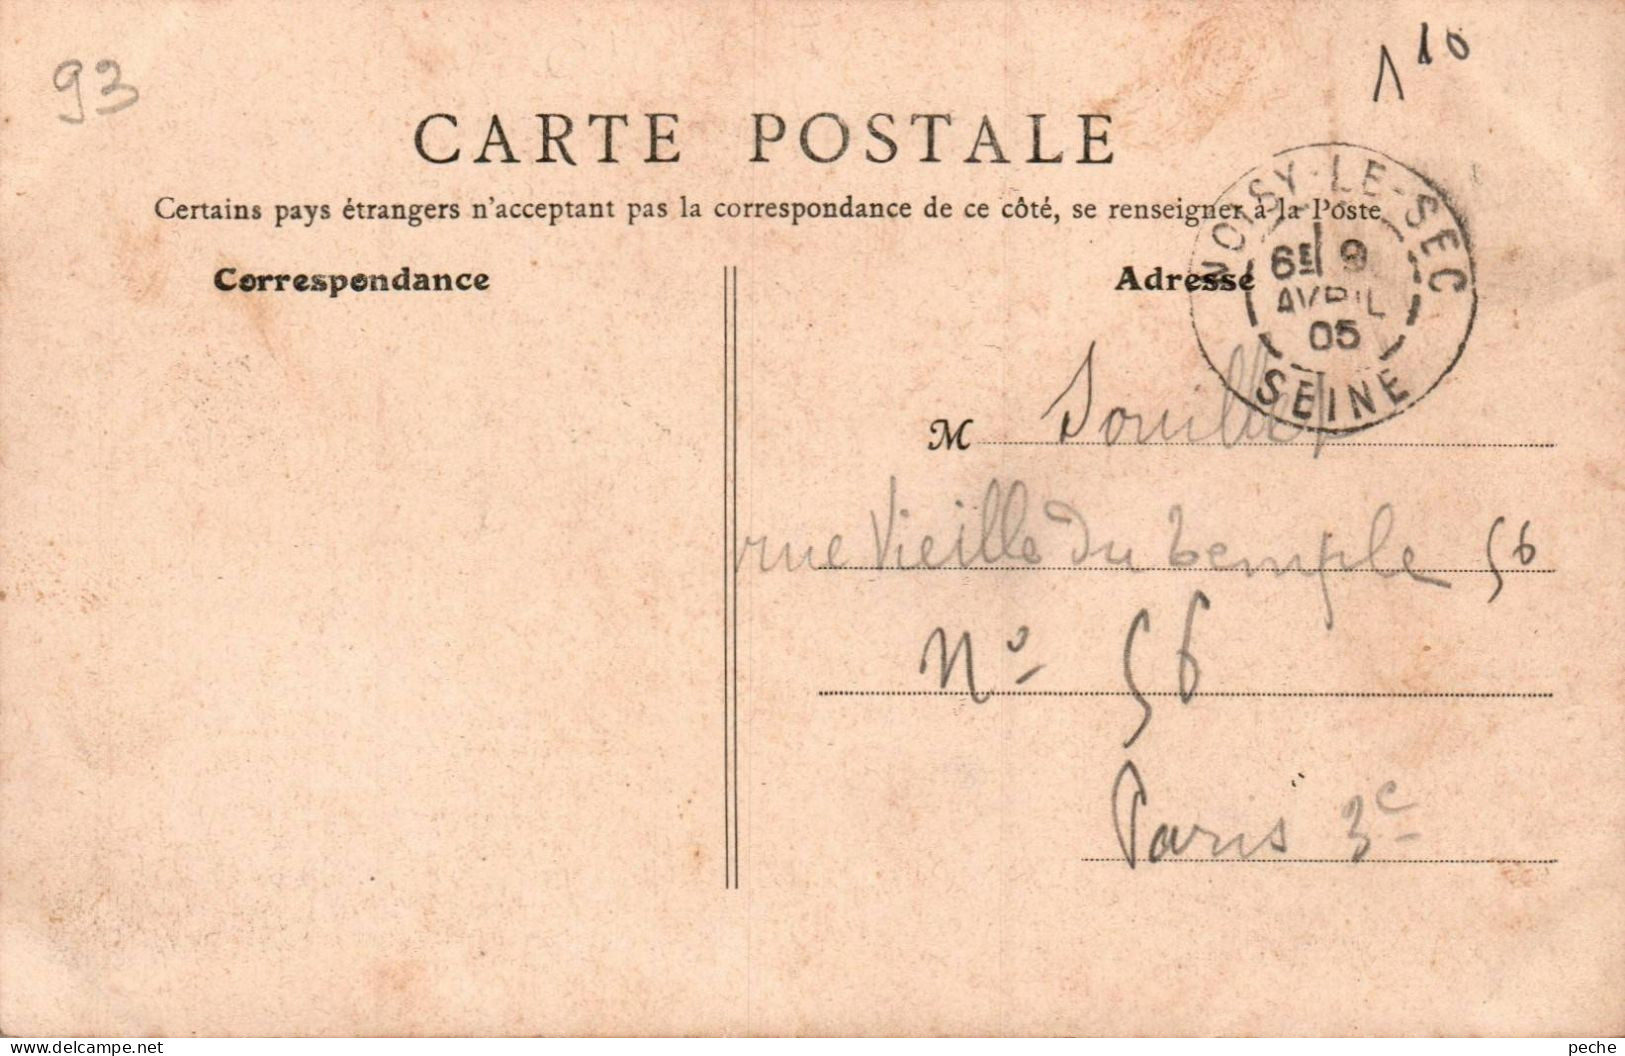 93
1 10
CARTE POSTALE
Certains pays étrangers n'acceptant pas la correspondance de ce côté, se renseigner à la Poste
Correspondance
Adresse
NOISY-LE-SEC
6E 9
AVRIL
05
SEINE
M
rue Vieille du temple 56
No 56
Paris 3e
delcampe.net
peche